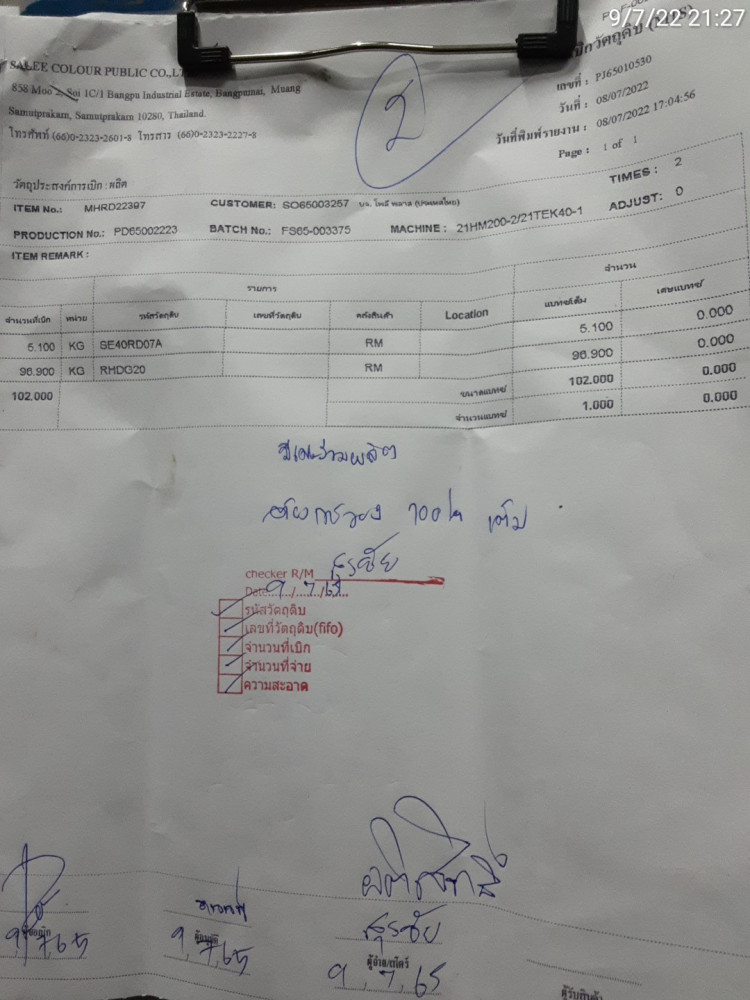 9/7/22 21:27
SALEE COLOUR PUBLIC CO.,LT
858 Moo 2, Soi 1C/1 Bangpu Industrial Estate, Bangpumai, Muang
Samutprakarn, Samutprakarn 10280, Thailand.
โทรศัพท์ (66)0-2323-2601-8 โทรสาร (66)0-2323-2227-8
2
เลขที่ : PJ65010530
วันที่ : 08/07/2022
วันที่พิมพ์รายงาน : 08/07/2022 17:04:56
Page : 1 of 1
วัตถุประสงค์การเบิก : ผลิต
TIMES : 2
ITEM No.: MHRD22397 CUSTOMER: SO65003257 บจ. โพลี พลาส (ประเทศไทย)
ADJUST: 0
PRODUCTION No.: PD65002223 BATCH No.: FS65-003375 MACHINE : 21HM200-2/21TEK40-1
ITEM REMARK :
รายการ จำนวน
จำนวนที่เบิก หน่วย รหัสวัตถุดิบ เลขที่วัตถุดิบ คลังสินค้า Location แบทช์เต็ม เศษแบทช์
5.100 KG SE40RD07A RM 5.100 0.000
96.900 KG RHDG20 RM 96.900 0.000
102.000 ขนาดแบทช์ 102.000 0.000
จำนวนแบทช์ 1.000 0.000
checker R/M สุรชัย
Date 9/7/65
รหัสวัตถุดิบ
เลขที่วัตถุดิบ(fifo)
จำนวนที่เบิก
จำนวนที่จ่าย
ความสะอาด
สุรชัย
9/7/65 9, 7, 65 9, 7, 65